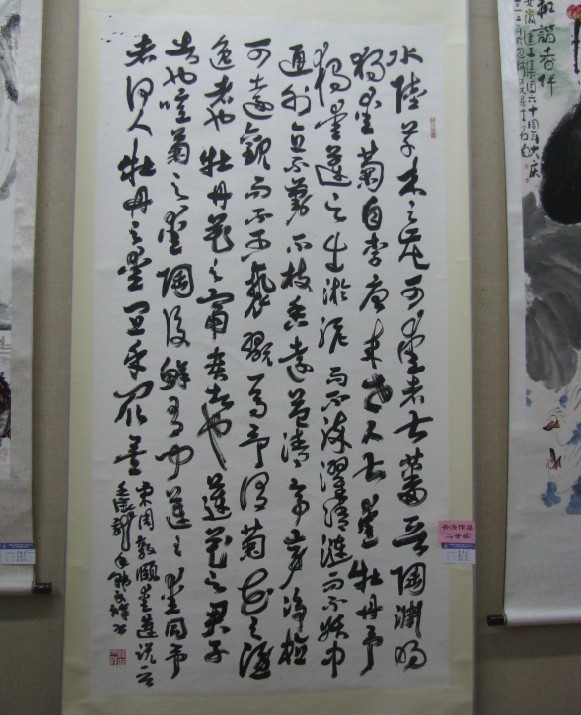 水陸草木之花可愛者甚蕃晉陶淵明
獨愛菊自李唐來世人甚愛牡丹予
獨愛蓮之出淤泥而不染濯清漣而不妖中
通外直不蔓不枝香遠益清亭亭淨植
可遠觀而不可褻翫焉予謂菊花之隱
逸者也牡丹花之富貴者也蓮花之君子
者也噫菊之愛陶後鮮有聞蓮之愛同予
者何人牡丹之愛宜乎眾矣
宋周敦頤愛蓮說
书法作品
二等奖
六十周年大庆